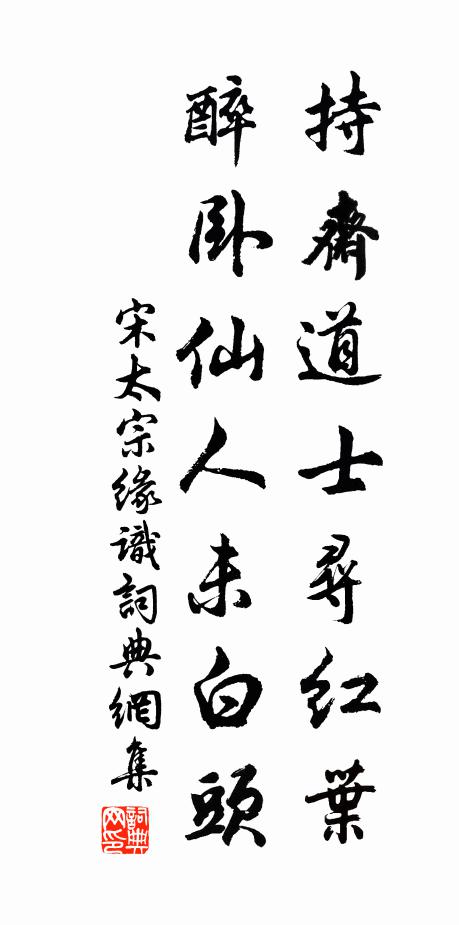 持齋道士尋紅葉
醉臥仙人未白頭
宋太宗緣識詞典網集
詞典網印